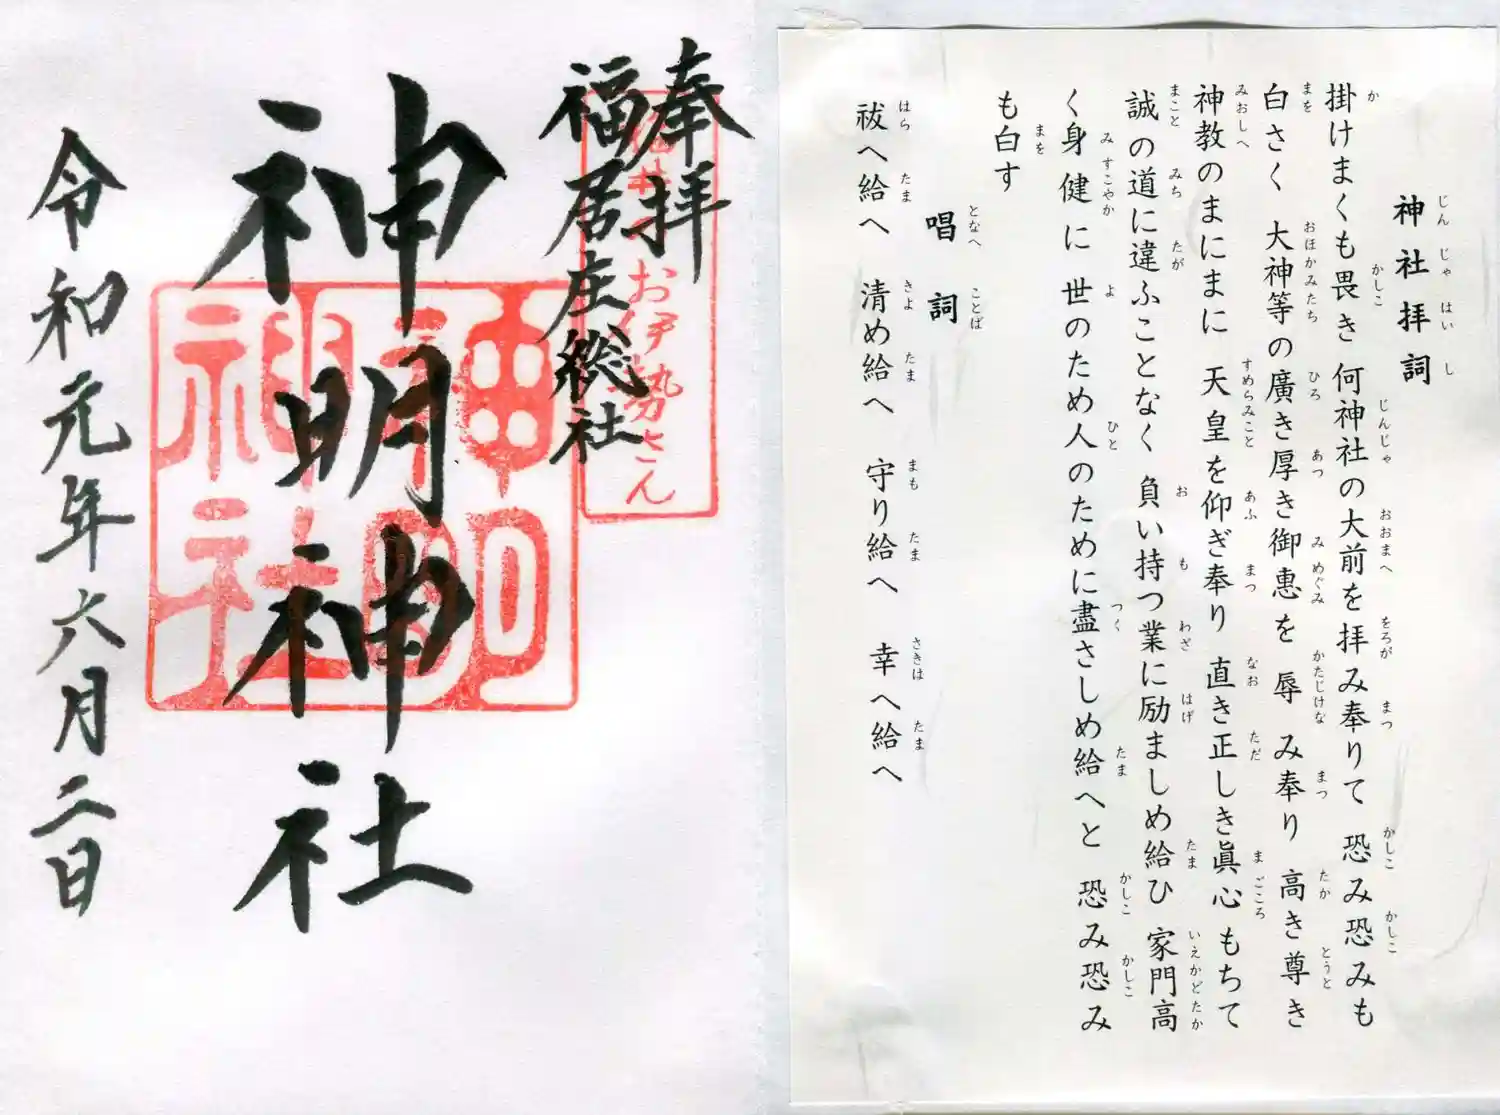 神社拝詞
掛けまくも畏き 何神社の大前を拝み奉りて 恐み恐みも
白さく 大神等の廣き厚き御惠を 辱 み奉り 高き尊き
神教のまにまに 天皇を仰ぎ奉り 直き正しき眞心 もちて
誠の道に違ふことなく 負い持つ業に励ましめ給ひ 家門高
く身健に 世のため人のために盡さしめ給へと 恐み恐み
も白す
唱詞
祓へ給へ 清め給へ 守り給へ 幸へ給へ
奉拝
福居庄総社
神明神社
令和元年六月二日
お伊勢さん
神明神社